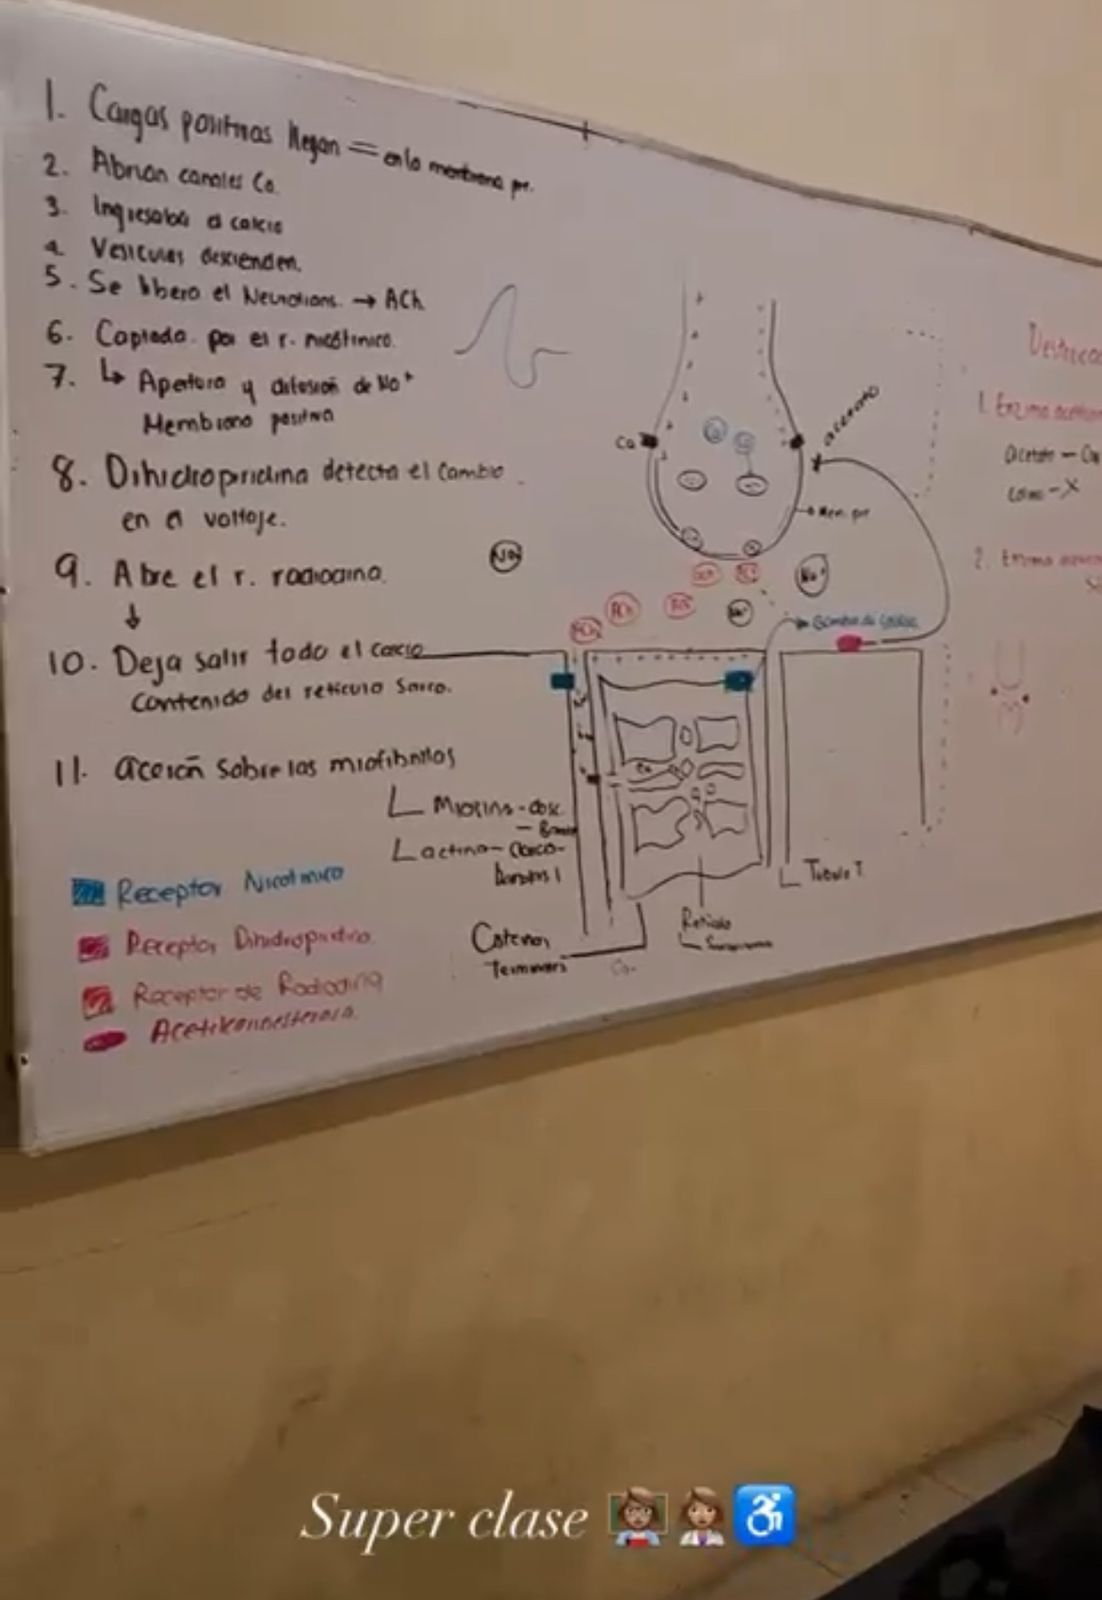 1. Cargas positivas llegan = en la membrana pr.
2. Abrian canales Ca.
3. Ingresaba el calcio
4. Vesiculas descienden.
5. Se libera el Neurotrans. → ACh
6. Captado por el r. nicotinico.
7. ↳ Apertura y difusion de Na+
Membrana positiva
8. Dihidropiridina detecta el cambio
en el voltaje.
9. Abre el r. radiodina.
↓
10. Deja salir todo el calcio
contenido del reticulo Sarco.
11. accion sobre las miofibrillas
Miosina - osc.
Lactina - claro -
Bandas I
Receptor Nicotinico
Receptor Dihidropiridina
Receptor de Radiodina
Acetilcolinesterasa
Ca
acetato
Mem. pr
Na+
Na+
Na+
ACh
ACh
Bomba de
Tubulo T.
Reticulo
Cisternas
Terminales
Ca
1. Enzima
acetato -
2. Enzima
Super clase